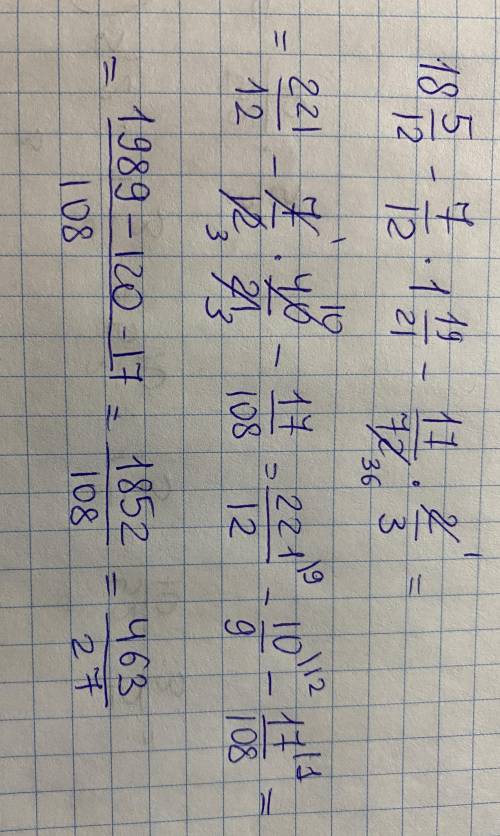 18 5/12 - 7/12 · 1 19/21 - 17/72 36 · 2 1/3 =
= 221/12 - 7 1/12 3 · 40 10/21 3 - 17/108 = 221 \9/12 - 10 \12/9 - 17 \1/108 =
= 1989 - 120 - 17/108 = 1852/108 = 463/27